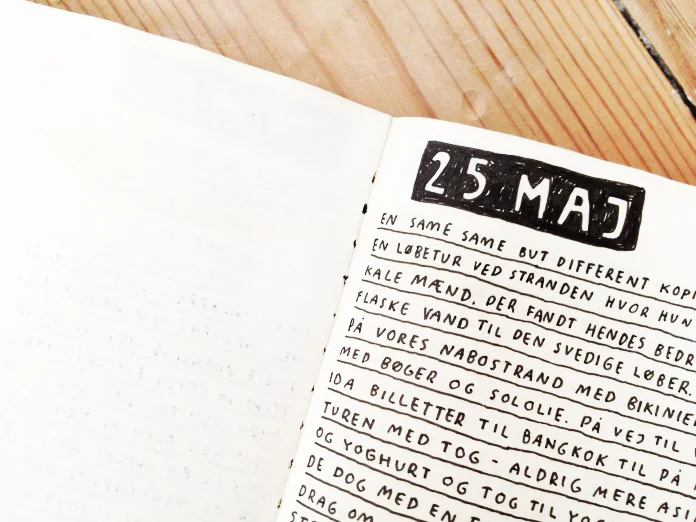 25 MAJ
EN SAME SAME BUT DIFFERENT
EN LØBETUR VED STRANDEN HVOR HUN
KALE MÆND. DER FANDT HENDES
FLASKE VAND TIL DEN SVEDIGE LØBER.
PÅ VORES NABOSTRAND MED
MED BØGER OG SOLOLIE. PÅ VEJ TIL
IDA BILLETTER TIL BANGKOK TIL PÅ
TUREN MED TOG - ALDRIG MERE
OG YOGHURT OG TOG TIL
DE DOG MED EN
DRAG OM